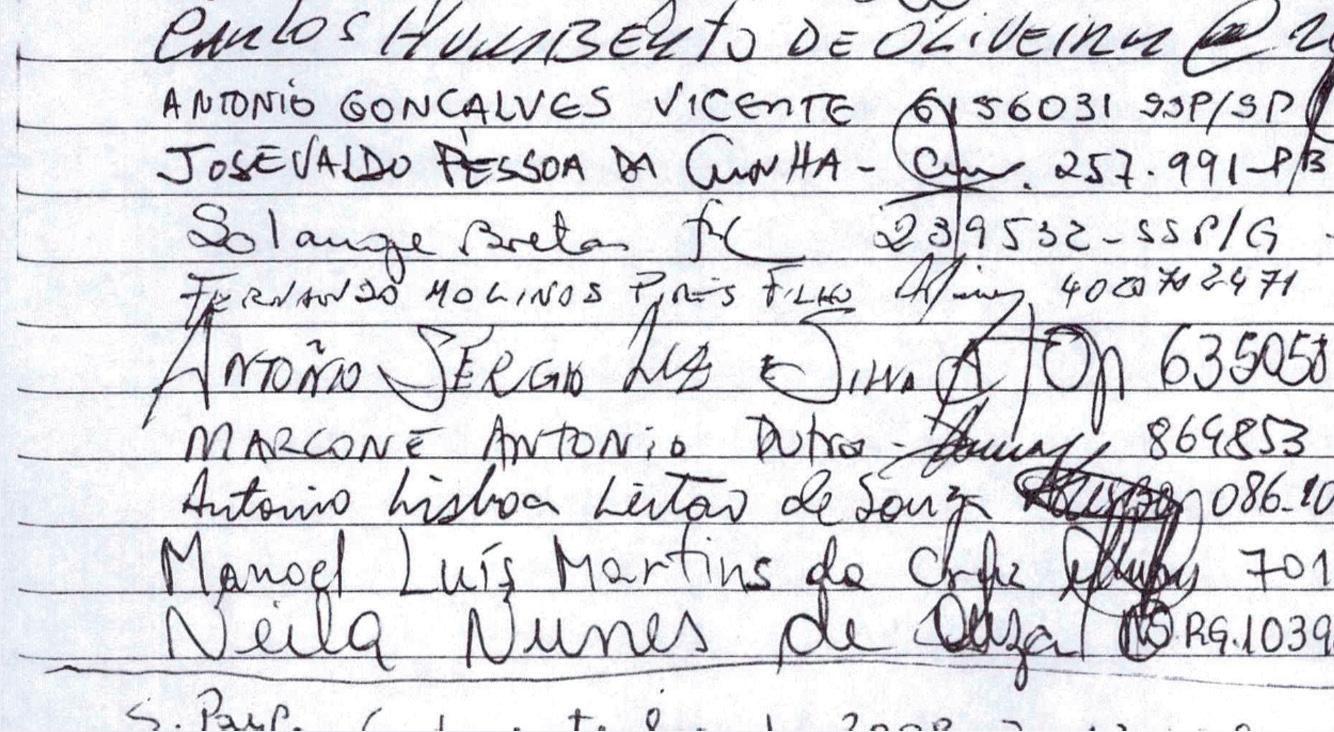 CARLOS HUMBERTO DE OLIVEIRA
ANTONIO GONÇALVES VICENTE 6156031 SSP/SP
JOSEVALDO PESSOA DA CUNHA - 257.991-PB
Solange Bretas 239532-SSP/G
FERNANDO MOLINOS PIRES FILHO
ANTOÑIO SERGIO LUZ E SILVA 635058
MARCONE ANTONIO Dutra - 869853
Antonio Lisboa Leitão de Souza 086.10
Manoel Luís Martins da Cruz 701
Neila Nunes de Souza RG.1039